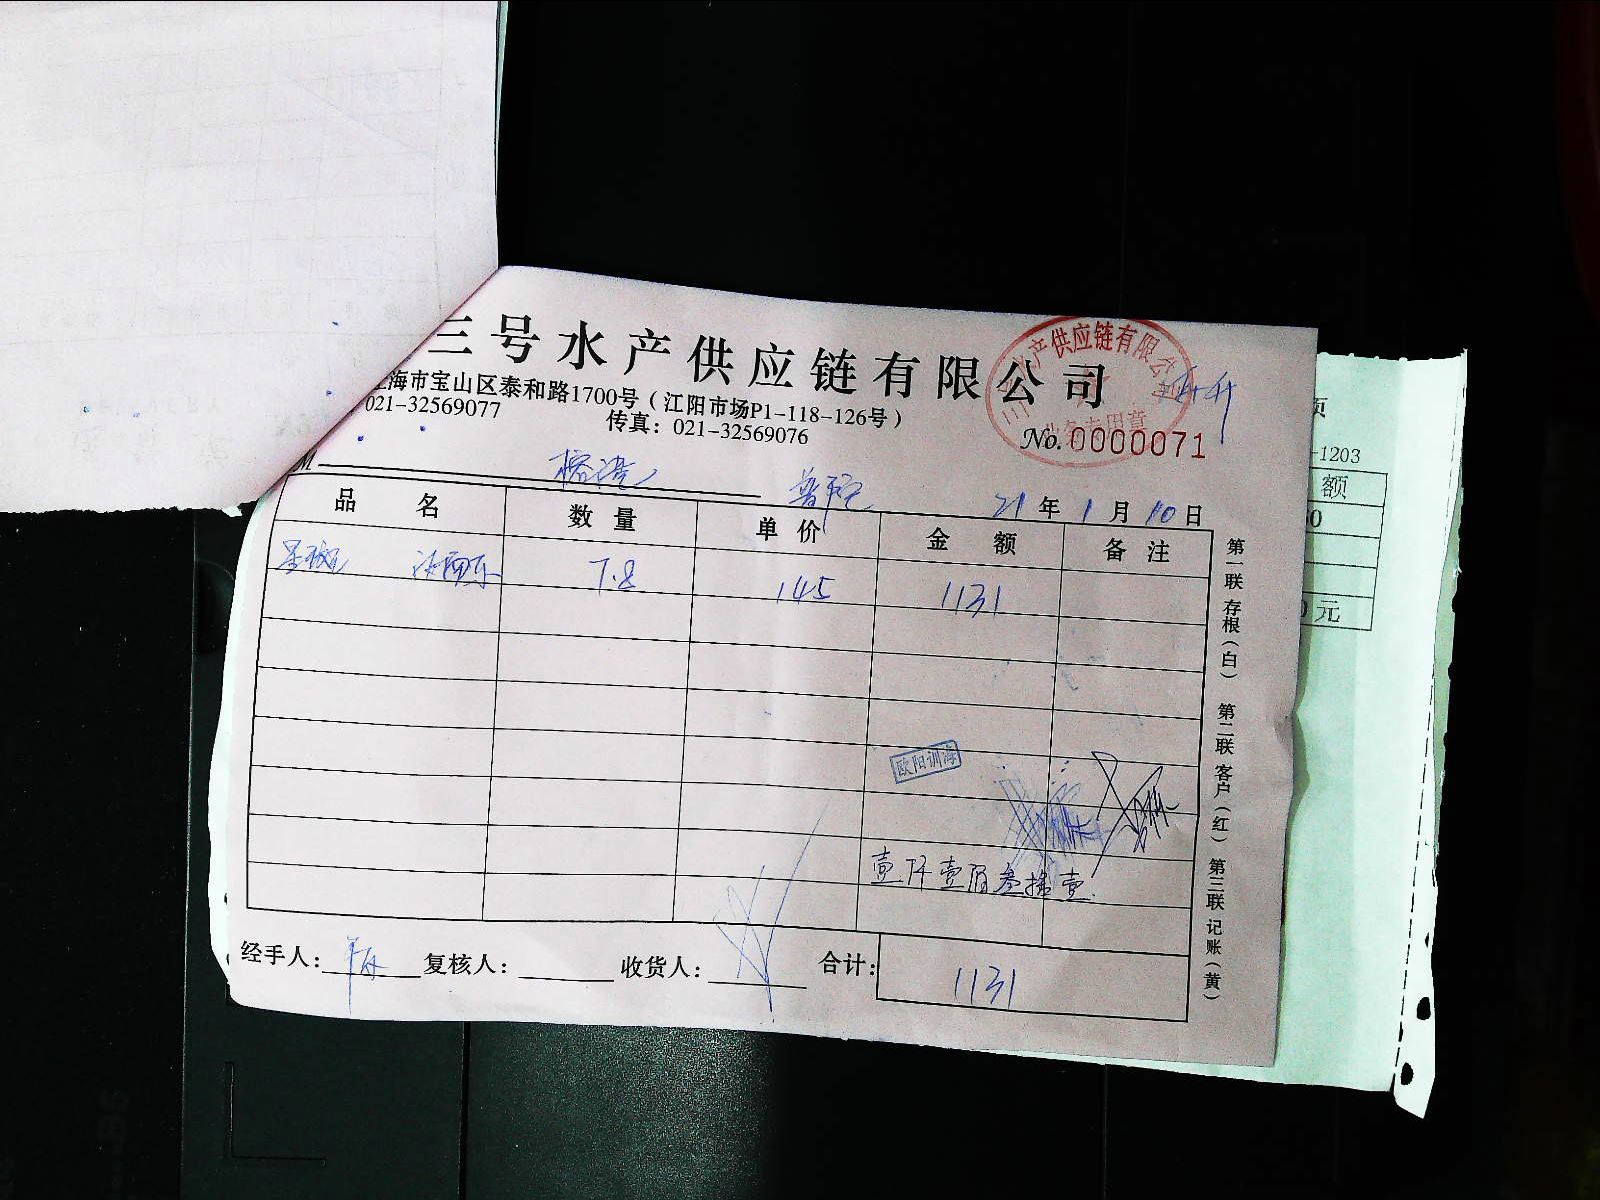 三号水产供应链有限公司
海市宝山区泰和路1700号（江阳市场P1-118-126号）
021-32569077 传真：021-32569076
产供应链有限公
用章
No. 0000071
M
21年1月10日
品 名 数 量 单 价 金 额 备 注
7.8 145 1131
欧阳训海
壹仟壹佰叁拾壹
经手人： 复核人： 收货人： 合计： 1131
第一联 存根（白） 第二联 客户（红） 第三联 记账（黄）
页
-1203
额
0
0元